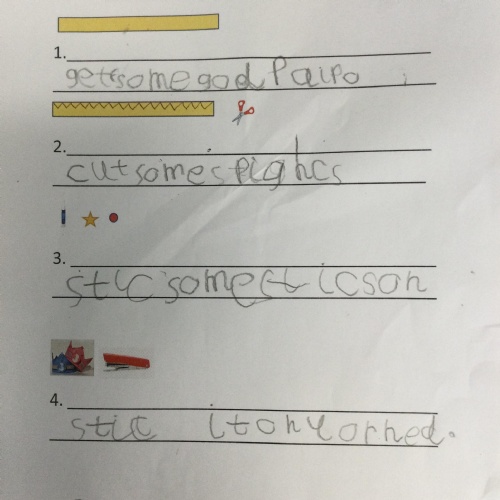 1.
getsome god Paipo
2.
cut some spighcs
3.
stic some sticson
4.
stic it on Yorhed.